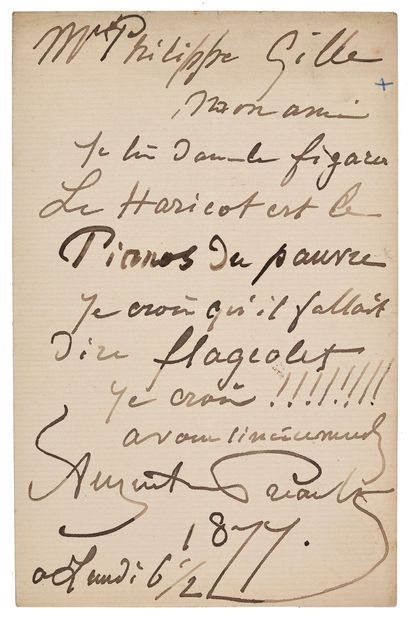 Mr Philippe Gille
Mon ami
Je lis dans le figaro
Le Haricot est le
Pianos du pauvre
Je crois qu'il fallait
dire flageolet
Je crois !!!!!!!!
a vous sincèrement
Auguste Préault
1877.
Lundi 6h 1/2